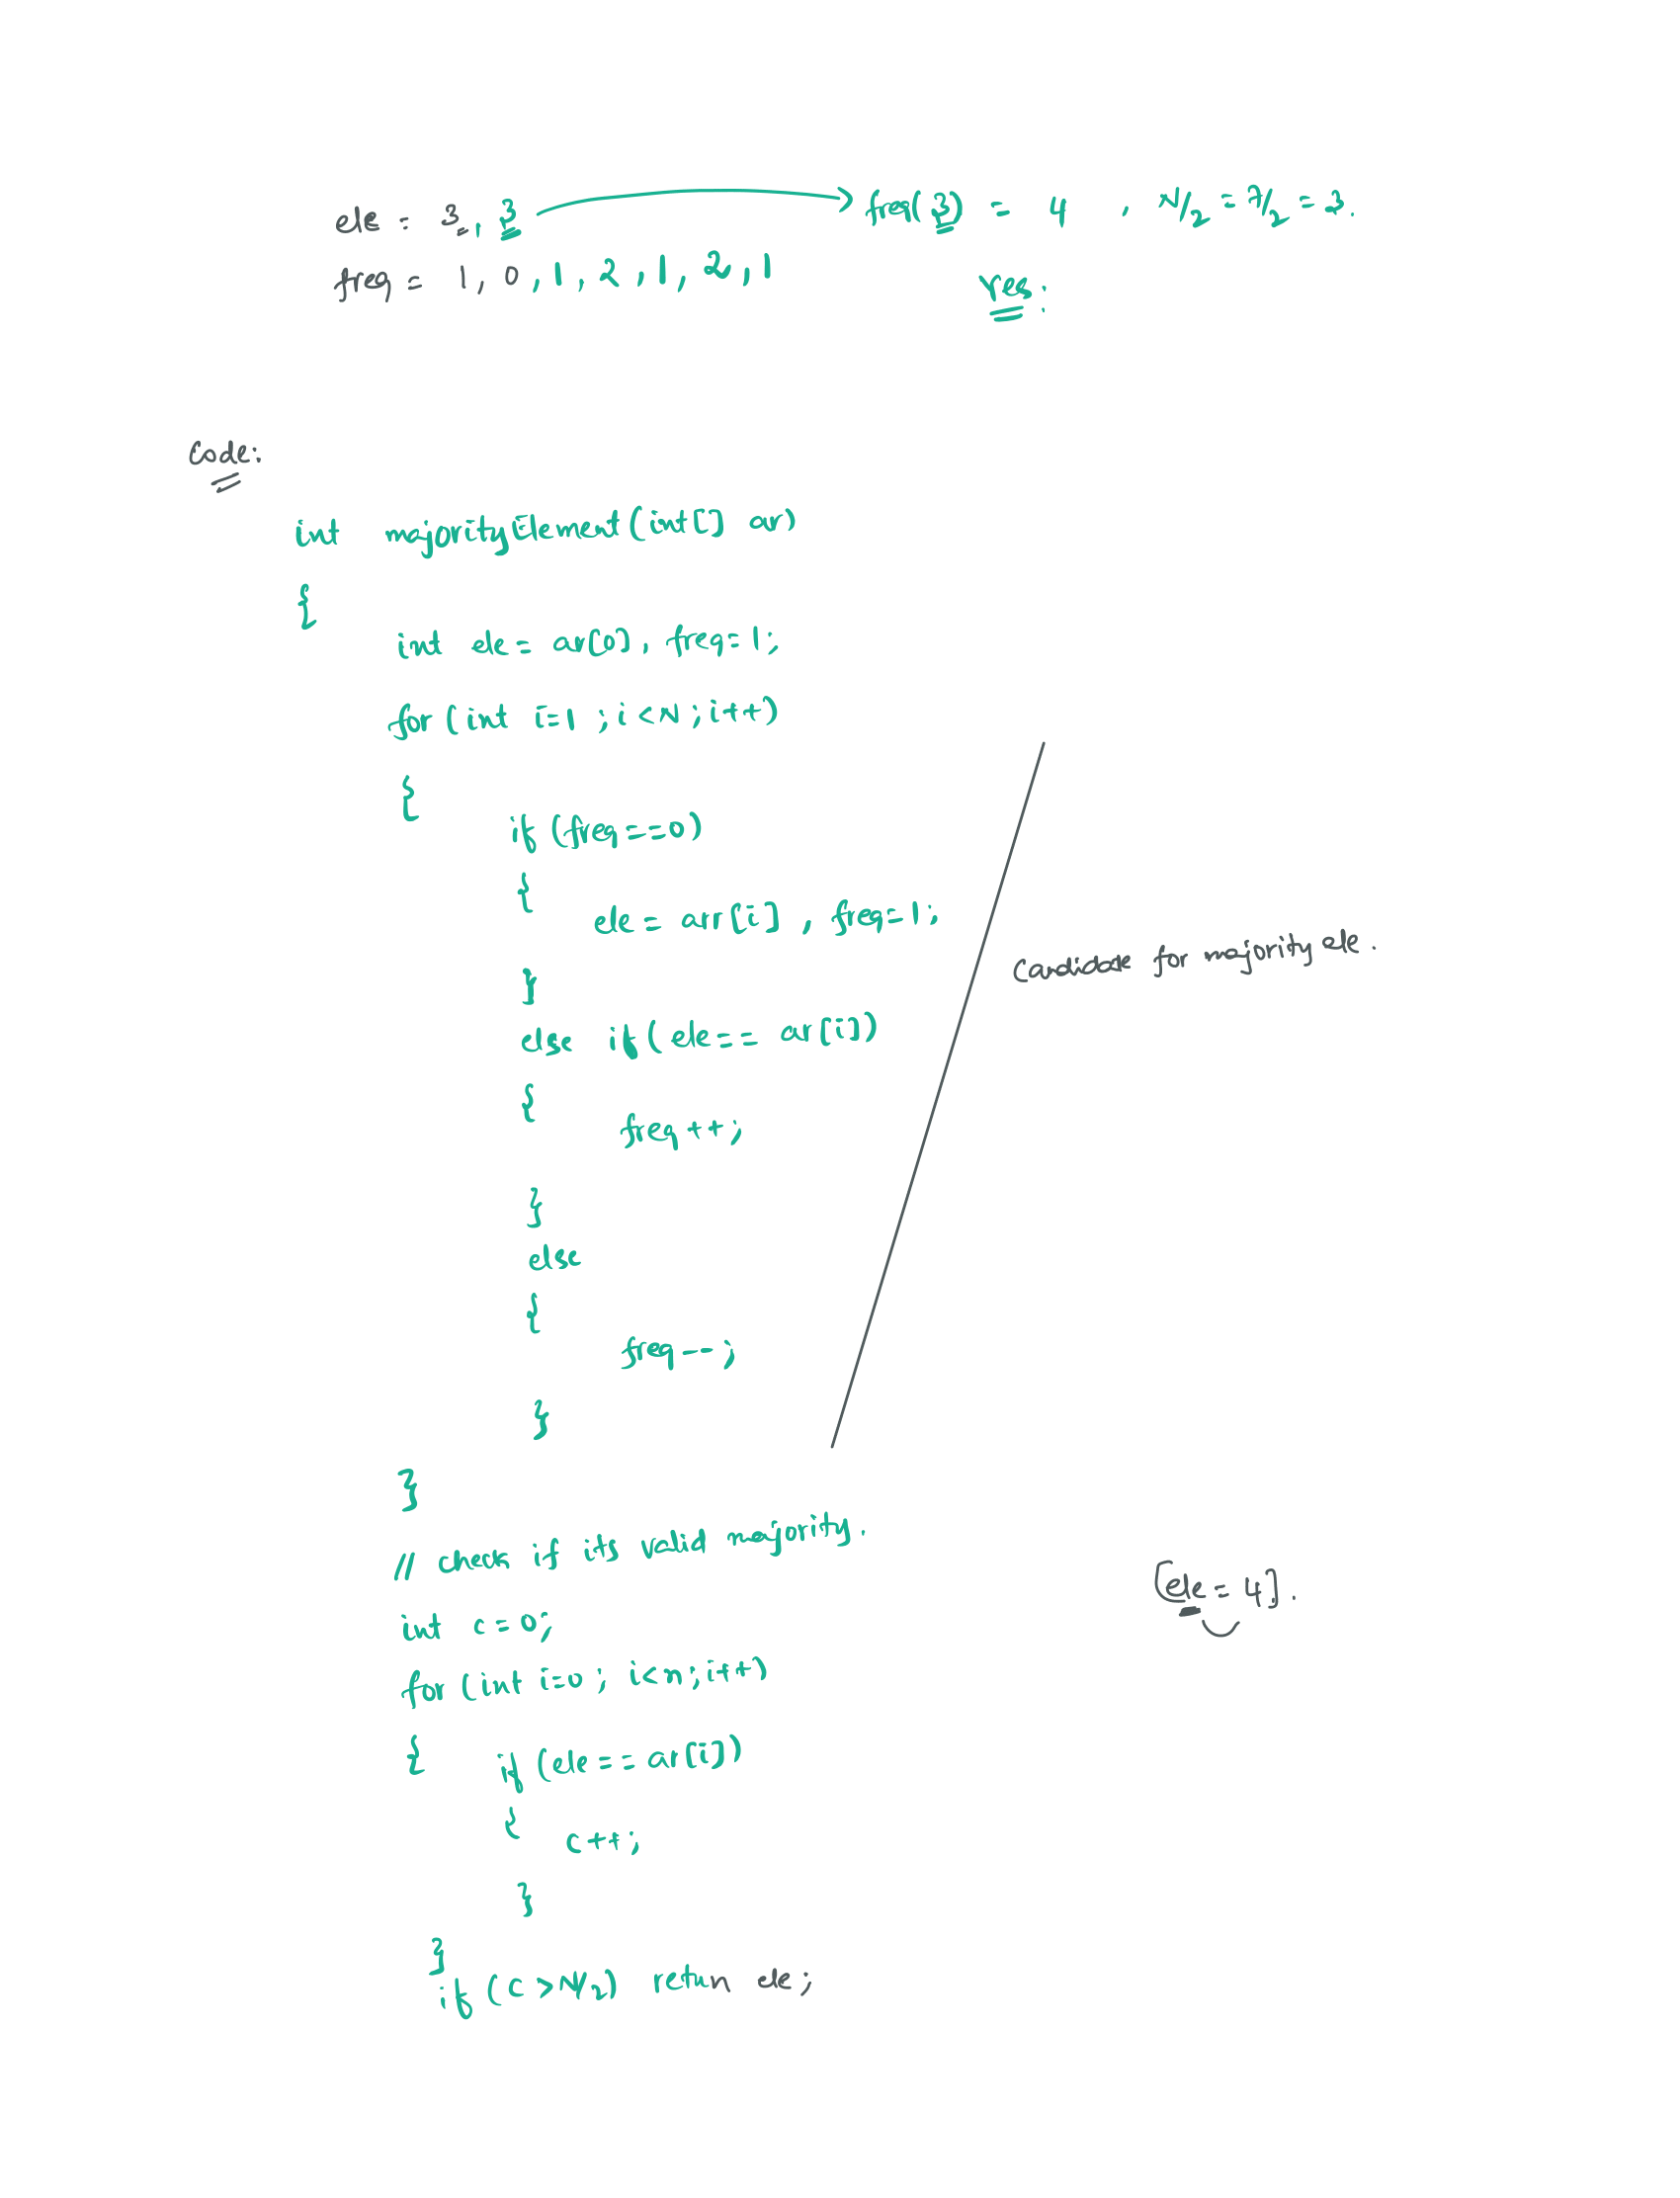 ele = 3, 3 → freq(3) = 4 , N/2 = 7/2 = 3.
freq = 1, 0, 1, 2, 1, 2, 1
Yes:
Code:
int majorityElement(int[] ar)
{
int ele = ar[0], freq=1;
for (int i=1 ; i<N ; i++)
{
if (freq==0)
{ ele = arr[i] , freq=1;
}
else if( ele== ar[i])
{ freq ++;
}
else
{
freq--;
}
}
Candidate for majority ele.
// check if its valid majority.
int c=0;
[ele = 4].
for (int i=0 ; i<n ; i++)
{ if (ele== ar[i])
{ c++;
}
}
if (c > N/2) return ele;